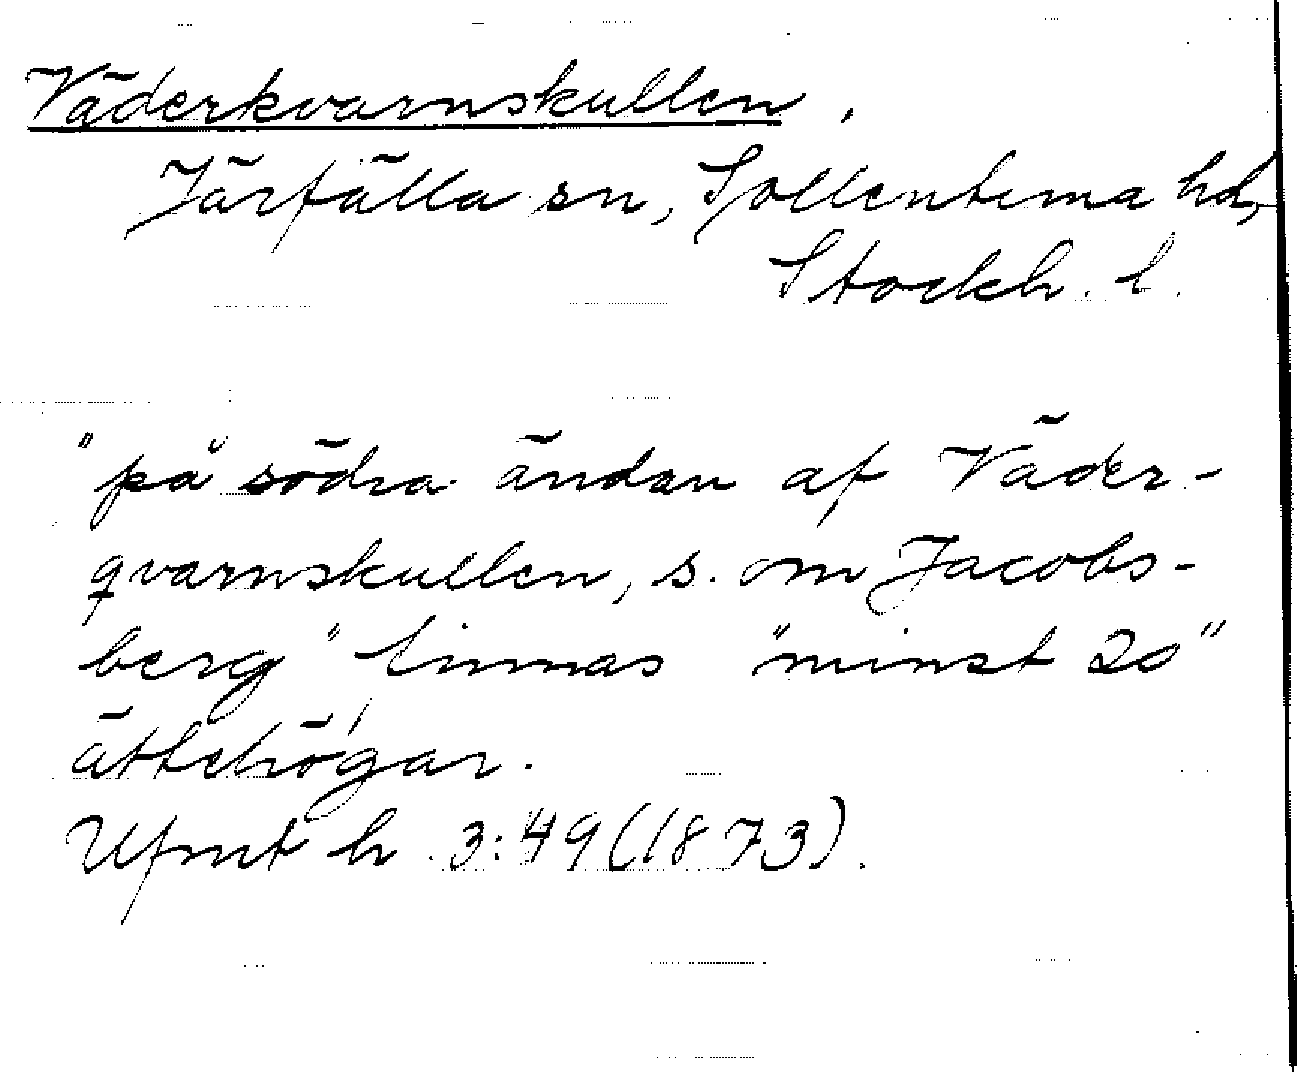 Väderkvarnskullen,
Järfälla sn, Sollentuna hd,
Stockh. l.
"på södra ändan af Väder-
qvarnskullen, s. om Jacobs-
berg" finnas "minst 20"
ättehögar.
Ufmt h 3:49 (1873).